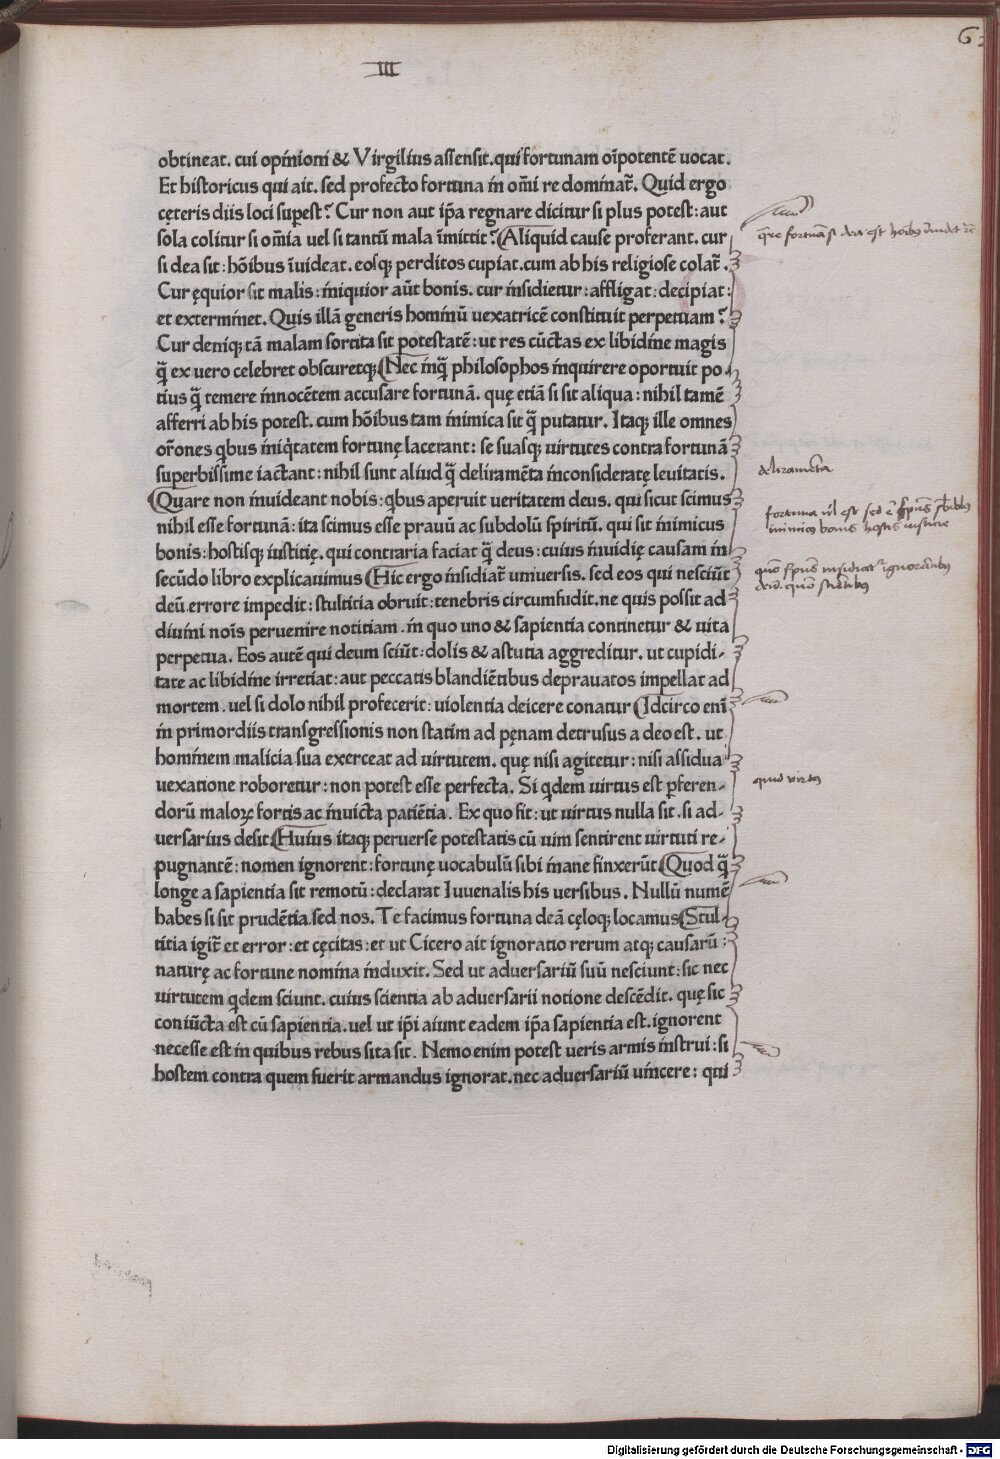 III
obtineat. cui opinioni & Virgilius assensit. qui fortunam oīpotentē uocat.
Et historicus qui ait. sed profecto fortuna in omī re dominat̃. Quid ergo
cęteris diis loci supest? Cur non aut ip̄a regnare dicitur si plus potest: aut
sola colitur si om̄ia uel si tantū mala īmittit? Aliquid cause proferant. cur
si dea sit: hōibus īuideat. eosq; perditos cupiat. cum ab his religiose colat̃.
Cur ęquior sit malis: iniquior aūt bonis. cur insidietur: affligat: decipiat:
et exterminet. Quis illā generis hominū uexatricē constituit perpetuam?
Cur deniq; tā malam sortita sit potestatē: ut res cūctas ex libidine magis
q̃ ex uero celebret obscuretq; Nec inq̃ philosophos inquirere oportuit po-
tius q̃ temere innocētem accusare fortunā. quę etiā si sit aliqua: nihil tamē
afferri ab his potest. cum hōibus tam inimica sit q̃ putatur. Itaq; ille omnes
or̄ones qbus iniq̇tatem fortunę lacerant: se suasq; uirtutes contra fortunā
superbissime iactant: nihil sunt aliud q̃ deliramēta inconsideratę leuitatis.
Quare non inuideant nobis: qbus aperuit ueritatem deus. qui sicut scimus
nihil esse fortunā: ita scimus esse prauū ac subdolū spiritū. qui sit inimicus
bonis: hostisq; iustitię. qui contraria faciat q̃ deus: cuius inuidię causam in
secūdo libro explicauimus Hic ergo insidiat̃ uniuersis. sed eos qui nesciūt
deū. errore impedit: stultitia obruit: tenebris circumfudit. ne quis possit ad
diuini nois̄ peruenire notitiam. in quo uno & sapientia continetur & uita
perpetua. Eos autē qui deum sciūt: dolis & astutia aggreditur. ut cupidi-
tate ac libidine irretiat: aut peccatis blandiētibus deprauatos impellat ad
mortem. uel si dolo nihil profecerit: uiolentia deicere conatur Idcirco enī
in primordiis transgressionis non statim ad pęnam detrusus a deo est. ut
hominem malicia sua exerceat ad uirtutem. quę nisi agitetur: nisi assidua
uexatione roboretur: non potest esse perfecta. Si qdem uirtus est pferen-
dorū maloꝝ fortis ac inuicta patiētia. Ex quo fit: ut uirtus nulla sit. si ad-
uersarius desit Huius itaq; peruerse potestatis cū uim sentirent uirtuti re-
pugnantē: nomen ignorent: fortunę uocabulū sibi inane finxerūt Quod q̃
longe a sapientia sit remotū: declarat Iuuenalis his uersibus. Nullū numē
habes si sit prudētia. sed nos. Te facimus fortuna deā cęloq; locamus Stul-
titia igit̃ et error: et cęcitas: et ut Cicero ait ignoratio rerum atq; causarū:
naturę ac fortune nomina induxit. Sed ut aduersariū suū nesciunt: sic nec
uirtutem qdem sciunt. cuius scientia ab aduersarii notione descēdit. quę sic
coniūcta est cū sapientia. uel ut ip̄i aiunt eadem ip̄a sapientia est. ignorent
necesse est in quibus rebus sita sit. Nemo enim potest ueris armis instrui: si
hostem contra quem fuerit armandus ignorat. nec aduersariū uincere: qui
deliramēta
quid virtus
Digitalisierung gefördert durch die Deutsche Forschungsgemeinschaft - DFG